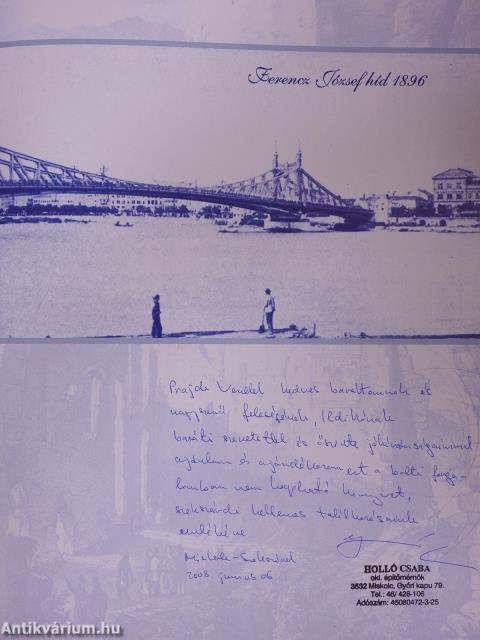 Ferencz József híd 1896
Prajda Vendel kedves barátomnak és
nagyszerű feleségének, Ildikónak
baráti szeretettel és őszinte jókívánságaimmal
ajánlom és ajándékozom ezt a bolti forga-
lomban nem kapható könyvet,
szekszárdi kellemes találkozásaink
emlékéül
Miskolc-Szekszárd
2008. június 06
HOLLÓ CSABA
okl. építőmérnök
3532 Miskolc, Győri kapu 79.
Tel.: 46/ 428-106
Adószám: 45080472-3-25
Antikvárium.hu